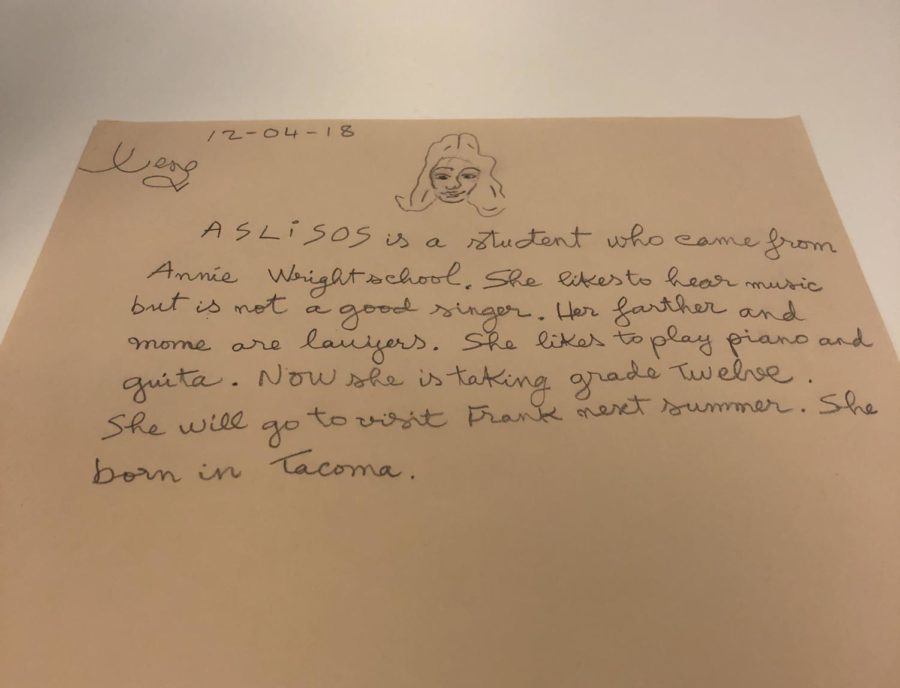 12-04-18
ASLiSOS is a student who came from
Annie Wright school. She likes to hear music
but is not a good singer. Her farther and
mome are lawyers. She likes to play piano and
guita. Now she is taking grade Twelve.
She will go to visit Frank next summer. She
born in Tacoma.